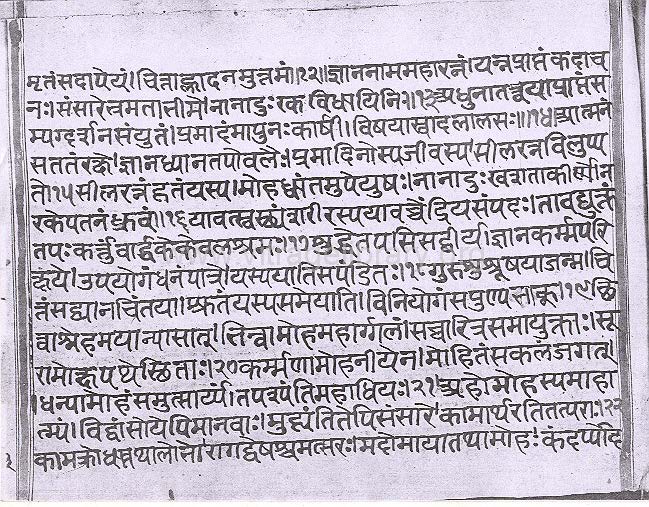 मृतंसदापेयं।चित्ताह्लादनमुत्तमं॥१२॥ज्ञाननाममहारत्नं।यन्नप्राप्तंकदाच
नः।संसारेत्रमताजीमे।नानादुःरकविधायिनि॥१३अधुनातत्त्वयाप्राप्तंस
म्यग्दर्शनसंयुतं।प्रमादंमापुनःकार्षी।विषयास्वादलालसः॥१४।आत्मनं
सततंरक्षे।ज्ञानध्यानतपोबलैः।प्रमादिनोस्यजीवस्य।सीलरत्नंविलुप्य
ते॥१५सीलरत्नंहतंयस्य।मोहध्वंतमुपेयुषः।नानादुःखशताकीर्णेन
रकेपतनंध्रुवं॥१६यावत्स्वस्थ्यंशरीरस्ययावच्चेंद्रियसंपदः।तावद्युक्तं
तपःकर्त्तुंवार्द्धकेकेवलश्रमः॥१७शुद्धेतपसिसद्वीर्यं।ज्ञानकर्म्मपरि
क्षये।उपयोगंधनंपात्रे।यस्ययातिसपंडितः॥१८गुरुशुश्रूषयाजन्म।चि
तंसद्ध्यानचिंतया।श्रुतंयस्यसमयाति।विनियोगंसपुण्यत्ताक्॥१९छि
त्वास्नेहमयान्पासान्।भित्वामोहमहार्ग्गलां।सच्चारित्रसमायुक्ताः।सू
रामोक्षपथेस्छिताः॥२०कर्म्मणामोहनीयेन।मोहितंसकलंजगत्।
।धन्यामोहंसमुत्सार्य्य।तपत्रपंतिमहाधियः॥२१।अहोमोहस्यमाहा
त्म्यं।विद्वांसोयेपिमानवाः।मुह्यंतितेपिसंसारे।कामार्थरतितत्पराः॥२२
कामक्रोधस्तथालोभो।रागद्वेषश्चमत्सरः।मदोमायातथामोहः।कंदर्प्पोद